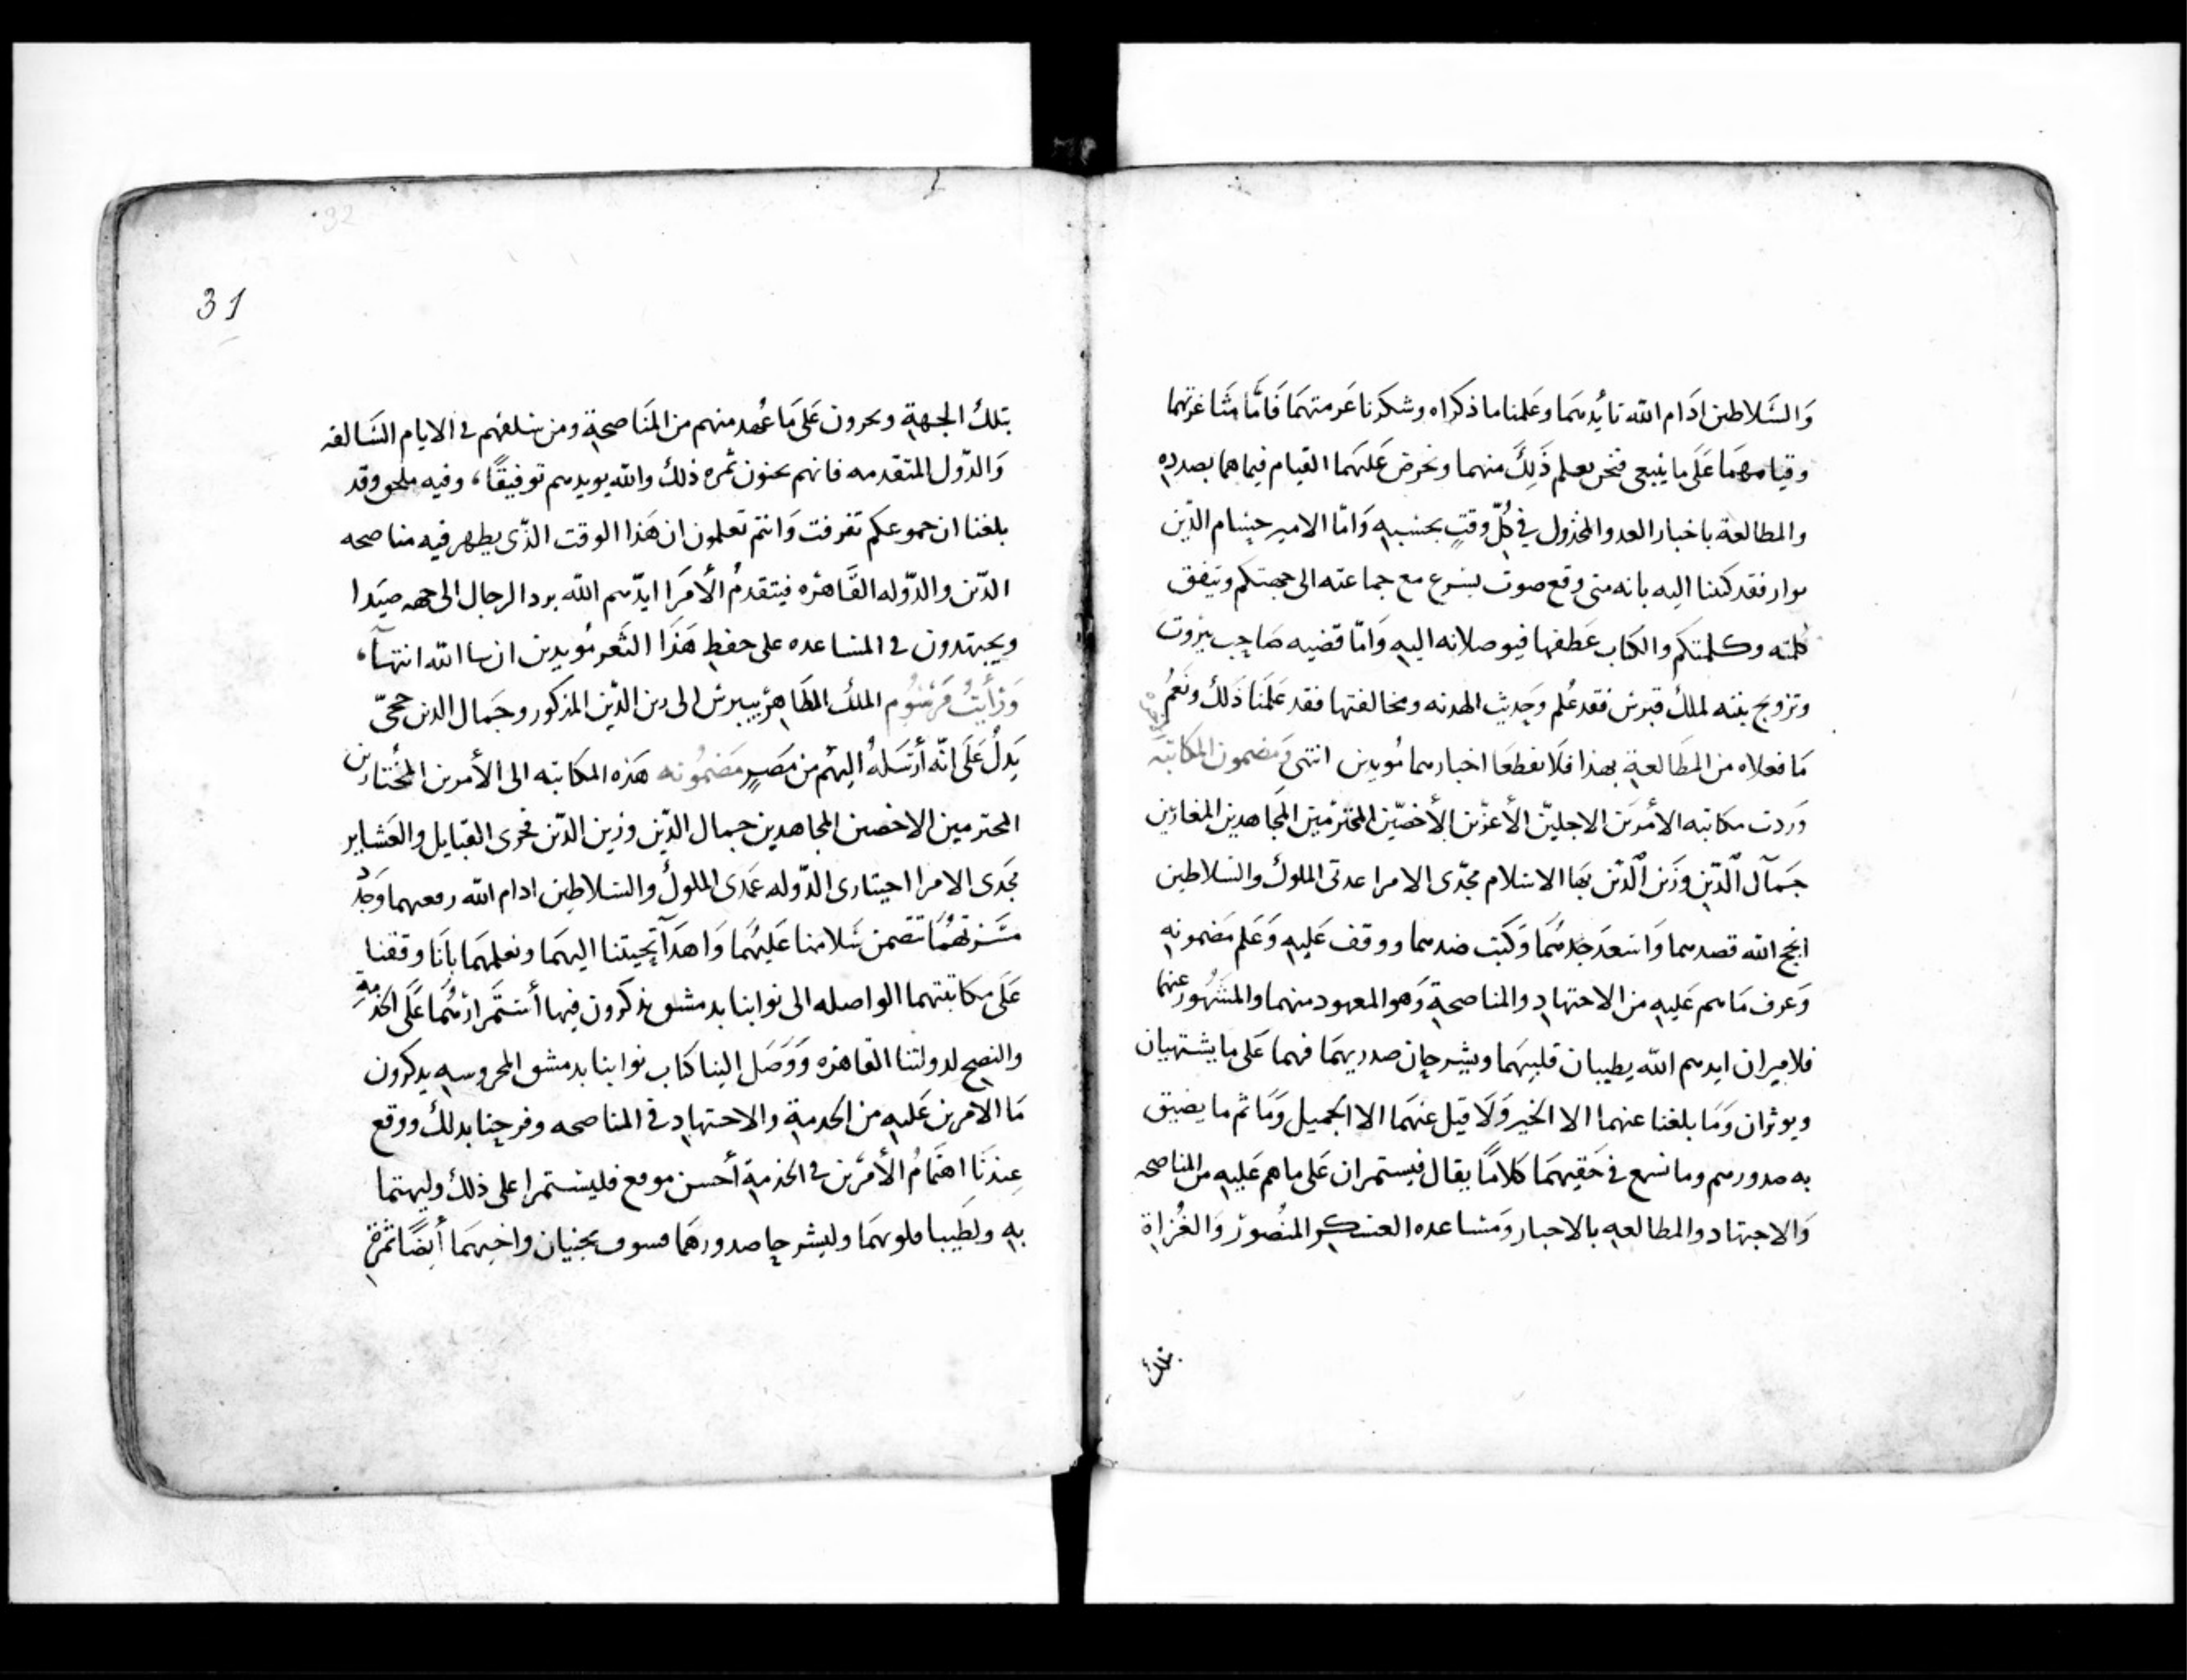 وَالسَّلاطين ادَام الله تأيُدهمَا وعَلمنا ما ذكراه وشكرنا عَزمتهمَا فَامَّا مثَاغرتهما
وقيامهمَا عَلى ما ينبعى فنحن نعلم ذَلِكَ منهما ونحرض عَليهَما القيام فيما هما بصدده
والمطالعة باخبار العدو والمخذول في كُلّ وقتٍ بحسبهِ وَامّا الامير حسام الدّين
موار فقد كتبنا اليه بانه متى وقع صوت يسرع مع جماعته الى جهتكم وتتفق
كلمته وكلمتكم والكتاب عَطفها فيوصلانه اليهِ وَامّا قضيه صَاحِب بيْروت
وتزويج بنته لملك قبرس فقد عُلم وحَديث الهدنه ومخالفتها فقد عَلمَنا ذَلك ونعَمُ
مَا فعلاه من المطَالعةِ بهذا فلا نقطعَا اخبارهما مُويدين انتهى وَمضمون المكاتبَه
وَردت مكاتبه الأمْرَين الاجلينّ الأعزّين الأخصّين المحترمّين المجَاهدين المغازين
جمَآل الَّدّينِ وزَين الَّدّين بهَا الاسلام مجّدى الامرا عدتى الملوك والسلاطين
انجح الله قصدهما وَاسعدَ جدهُمَا وَكبَت ضدهما ووقف عَليهِ وَعَلم مَضمونهِ
وَعرف مَا هم عَليهِ من الاجتهاد والمناصحةِ وَهو المعهود منهما والمشهُور عنهما
فلاميران ايدهم الله يطيبان قلبيهَما ويشرحان صدريهمَا فهما عَلى ما يشتهيان
ويوثران وَمَا بلغنا عنهما الا الخير وَلَا قيل عنهَما الا الجميل وَمَا ثم ما يضيق
به صدورهم وما نسمع في حَقيهمَا كلامًا يقال فيستمران عَلى ما هم عَليهِ من المناصحه
وَالاجتهاد والمطالعهِ بالاخبار وَمَساعده العسكر المنصُور وَالغُزاةِ
بتلك
31
بتلكُ الجهةِ ويجرون عَلى مَا عُهد منهم من المنَاصحةِ ومن سلفهم في الايام السَالفه
وَالدّول المتقدمه فانهم يجنون ثمره ذلك والله يويدهم توفيقًا، وفيه ملحق وقد
بلغنا ان جموعكم تفرقت وَانتم تعلمون ان هَذا الوقت الذّى يظهر فيه مناصحه
الدّين والدّوله القَاهرْه فيتقدمُ الأمَرا ايدّهم الله برد الرجال الى جهه صَيَدا
ويجتهدون في المساعده على حفظِ هَذَا الثَغر مُويدين ان سا الله انتهى،
وَرَأيتُ مَرْسُوم الملك الظَاهرْ بيبرس الى زين الدّين المذكور وجَمال الدين حجىّ
يَدلُ عَلَى انّه أرْسَلهُ اليهُم من مَصرٍ مَضمُونه هَذه المكاتبه الى الأمرين المُختارين
المحترمين الاخصين المجاهدين جمال الدّين وزين الدّين فخرى القبايل والعَشاير
مجَدى الامرا اختيارى الدّوله عَمدَى الملوك والسلاطين ادام الله رفعهما وَجدّد
مسَرتهُمَا تتضمن سَلامنا عَليهُمَا وَاهدَآ تحيتنا اليهمَا ونعلمهمَا بانَا وقفنا
عَلى مكاتبتهما الواصله الى نوابنا بدمشق يذكرون فيها أستمَرارْهُمَا عَلَى الخدْمهِ
والنصح لدولتنا القاهره وَوَصَل الينا كتاب نوابنا بدمشق المحروسهِ يدكرون
مَا الامرين عَليهِ من الخدمةِ والاجتهادِ في المناصحه وفرحنا بدلك ووقع
عِندَنَا اهتمَامُ الأمْرين في الخذمةِ أحسن موقع فليستمرا على ذلك وليهتما
بهِ ولطَيبا قلوبهمَا وليشرحا صدورهمَا فسوف يجنيان واخيهَما أيضًا ثمرةِ